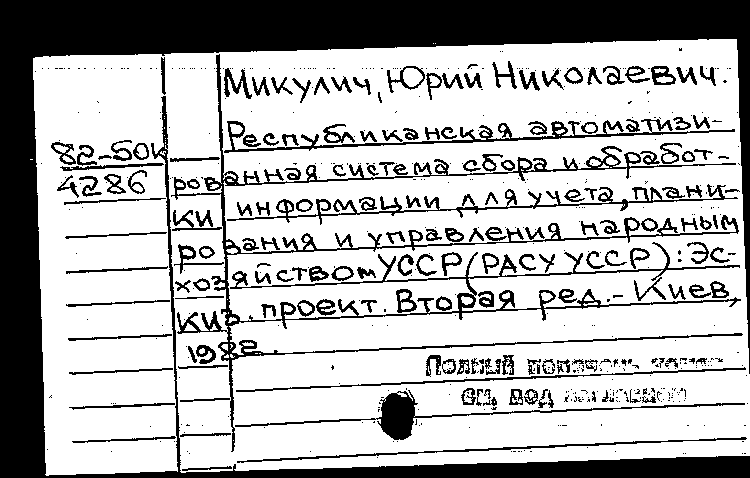 Микулич, Юрий Николаевич.
82-50к
4286
Республиканская автоматизи-
рованная система сбора и обработ-
ки информации для учета, плани-
рования и управления народным
хозяйством УССР (РАСУ УССР): Эс-
киз. проект. Вторая ред. - Киев,
1982.
Полный
см. под заглавием